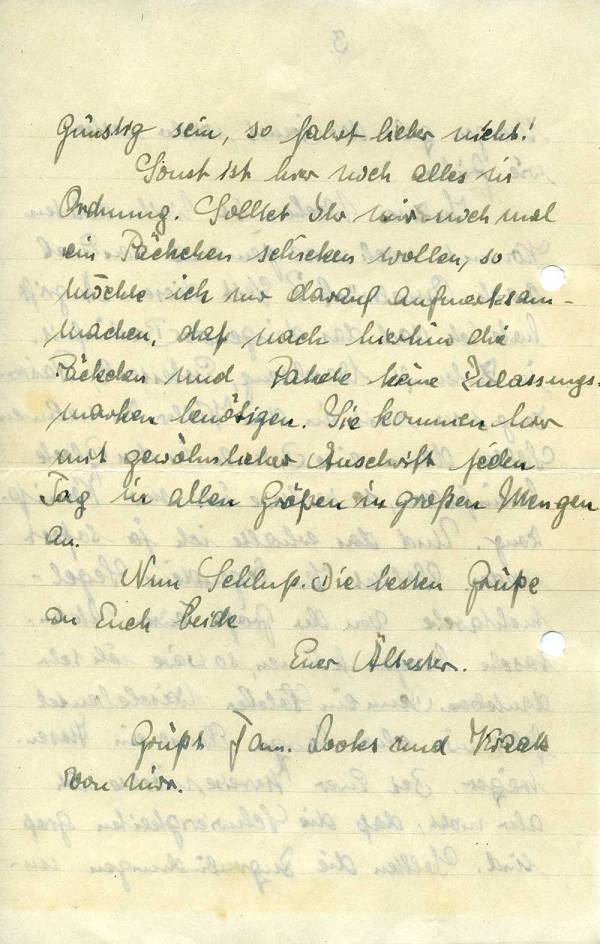 günstig sein, so fahrt lieber nicht!
Sonst ist hier noch alles in
Ordnung. Solltet Ihr mir noch mal
ein Päckchen schicken wollen, so
möchte ich nur darauf aufmerksam-
machen, daß nach hierhin die
Päckchen und Pakete keine Zulassungs-
marken benötigen. Sie kommen hier
mit gewöhnlicher Anschrift jeden
Tag in allen Größen in großen Mengen
an.
Nun Schluß. Die besten Grüße
an Euch beide
Euer Ältester.
Grüßt Fam. Looks und
von mir.